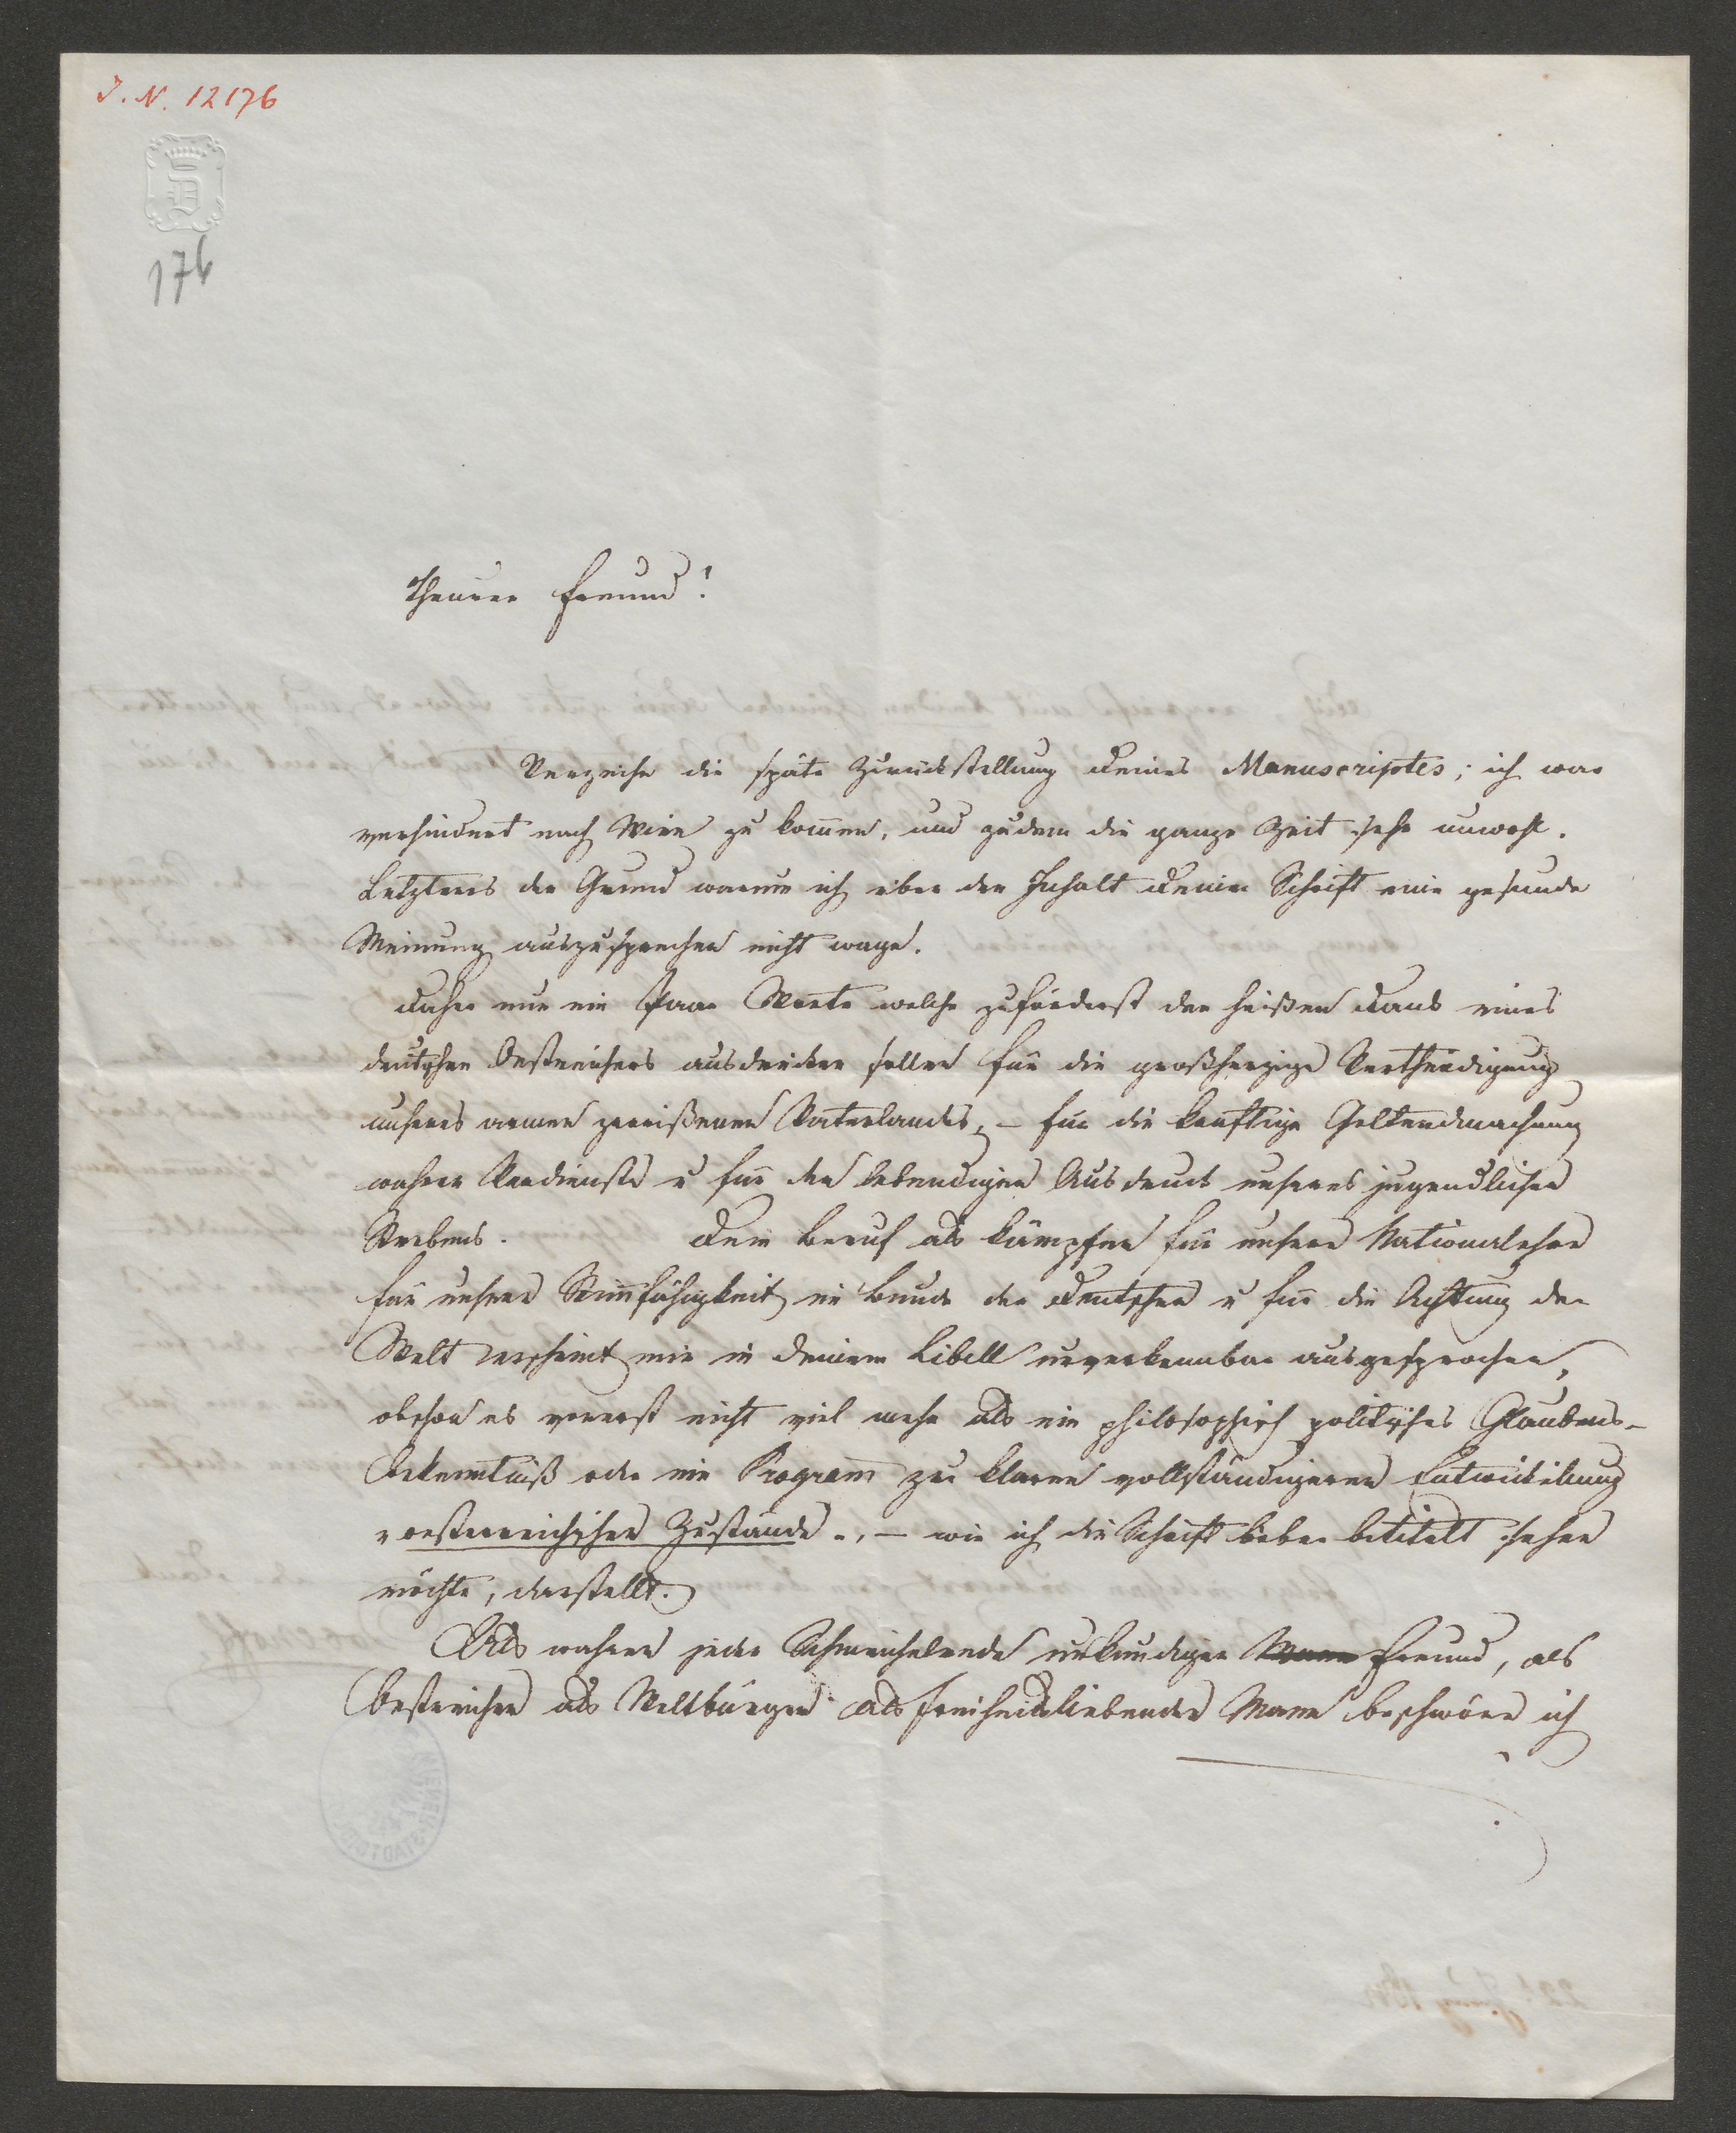 I. N. 12176
D
176
Theurer Freund!
Verzeihe die späte Zurückstellung deines Manuscriptes; ich war
verhindert nach Wien zu kommen, und zudem die ganze Zeit sehr unwohl.
Letzteres der Grund warum ich über den Inhalt deiner Schrift eine gesunde
Meinung auszusprechen nicht wage.
Daher nur ein Paar Worte welche zuförderst den heißen Dank eines
deutschen Oestreichers ausdrücken sollen für die großherzige Vertheidigung
unseres armen zerrißenen Vaterlandes, – für die kräftige Geltendmachung
wahrer Verdienste u für den lebendigen Ausdruck unseres jugendlichen
Strebens. Dein Beruf als Kämpfer für unsere Nationalehre
für unsere Stimfähigkeit im Bunde der Deutschen u für die Achtung der
Welt erscheint mir in deinem Libell unverkennbar ausgesprochen,
obschon es vorerst nicht viel mehr als ein philosophisch politisches Glaubens-
bekenntniß oder ein Program zur klaren vollständigeren Entwickelung
"oesterreichischer Zustände", – wie ich die Schrift lieber betitelt sehen
möchte, darstellt.
Als wahrer jeder Schmeichelrede unkundiger Freund, als
Oestreicher als Weltbürger als freiheitsliebender Mann beschwöre ich